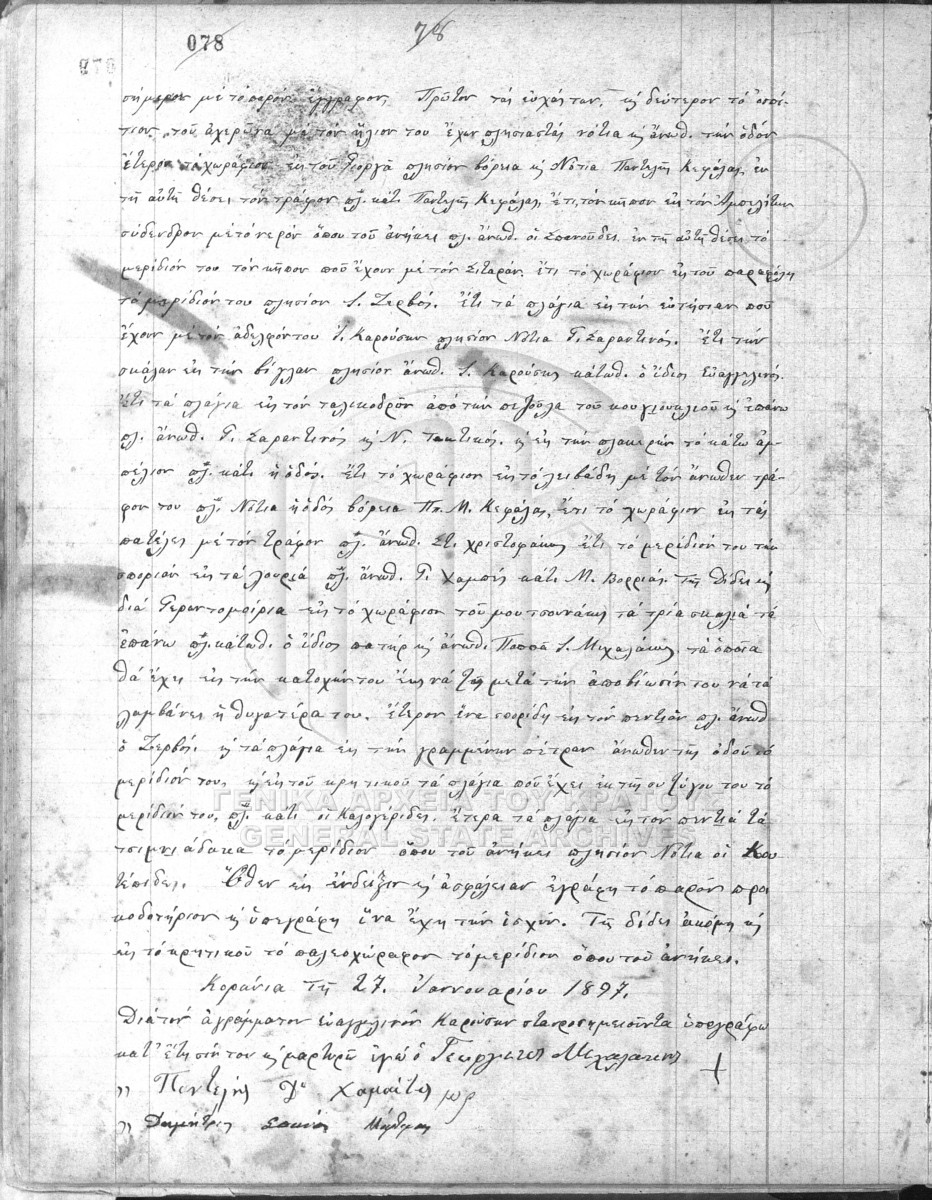 078
78
σήμερον μετόπαρόν ἔγγραφον, Πρῶτον τάς εὐχάς των, κ δεύτερον τό ὀσπί-
τιον τοῦ ἀχερῶνα μέ τόν ἥλιον του ἔχων πλησιαστάς νότια κ ἄνωθ. τήν ὁδόν
ἕτερον τό χωράφιον εἰς τοῦ Γιοργᾶ πλησίον βόρεια κ Νοτια Παντελῆς Κεφάλας, ἐν
τῇ αὐτῇ θέσει τόν τράφον πλ. κάτι Παντελῆς Κεφάλας, ἔτι, τόν κῆπον εἰς τόν
σύδενδρον μέ τό νερόν ὅπου τοῦ ἀνήκει πλ. ἄνωθ. οἱ Σπανοῦδες, ἐν τῇ αὐτῇ θέσει τό
μερίδιόν του τόν κῆπον ποῦ ἔχουν μέ τόν Σιταρᾶν. ἔτι τό χωράφιον εἰς τοῦ
τό μερίδιόν του πλησίον Ι. Ζερβός. ἔτι τά πλάγια εἰς τήν ποῦ
ἔχουν μέ τόν ἀδελφόν του Ι. Καρούσην πλησίον Νότια Γ. Σαραντινός. ἔτι τήν
σκάλαν εἰς τήν βίγλαν πλησίον ἄνωθ. Ι. Καρούσης κάτωθ. ὁ ἴδιος Εὐαγγελινός.
ἔτι τά πλάγια εἰς τόν ἀπό τήν πεζοῦλα τοῦ κ ἐπάνω
πλ. ἄνωθ. Γ. Σαραντινός κ Ν. κ εἰς τήν τό κάτω ἀμ-
πέλιον πλ. κάτι ἡ ὁδός. ἔτι τό χωράφιον εἰς τό λειβάδη μέ τόν ἄνωθεν τρά-
φον του πλ. Νότια ἡ ὁδός βόρεια Πα. Μ. Κεφάλας, ἔτι τό χωράφιον εἰς τάς
πατέλες μέ τόν τράφον πλ. ἄνωθ. ἔτι τό μερίδιόν του τήν
σποριάν εἰς τά λουριά πλ. ἄνωθ. Γ. Χαμπής κάτι Μ. Βορριάς. Τῆς δίδει κ
διά Γεροντομοίρια εἰς τό χωράφιον τοῦ μουτσουνάκη τά τρία σκαλιά τά
ἐπάνω πλ. κάτωθ. ὁ ἴδιος πατήρ κ ἄνωθ. Παππᾶ Ι. Μιχαλάκης, τά ὁποῖα
θά ἔχει εἰς τήν κατοχήν του ἕως νά ζῇ μετά τήν ἀποβίωσίν του νά τά
λαμβάνει ἡ θυγατέρα του. ἕτερον ἕνα σπορίδη εἰς τόν πεντιᾶν πλ. ἄνωθ
ὁ Ζερβός. κ τά πλάγια εἰς τήν γραμμένην πέτραν ἄνωθεν τῆς ὁδοῦ τό
μερίδιόν του, κ εἰς τοῦ κρητικοῦ τά πλάγια ποῦ ἔχει ἐκ τῆς συζύγου του τό
μερίδιόν του, πλ. κάτι οἱ Καλογερίδες. ἕτερα τά πλάγια εἰς τόν πεντιᾶ τά
τό μερίδιον ὅπου τοῦ ἀνήκει πλησίον Νότια οἱ
Ὅθεν εἰς ἔνδειξιν κ ἀσφάλειαν ἐγράφη τό παρόν προι
κοδοτήριον κ ὑπεγράφη ἵνα ἔχῃ τήν ἰσχύν. Τῆς δίδει ἀκόμη κ
εἰς τό κρητικοῦ τό παλεοχώραφον τό μερίδιον ὅπου τοῦ ἀνήκει.
Κορόνια τῇ 27. Ἰαννουαρίου 1897.
Διά τόν ἀγράμματον εὐαγγελινόν Καρούσην σταυροσημειοῦντα ὑπογράφω
κατ' ἔτησίν του κ μαρτυρῶ ἐγώ ὁ Γεώργιος Μιχαλάκης +
,, Παντελῆς
,, Δημήτρις
ΓΕΝΙΚΑ ΑΡΧΕΙΑ ΤΟΥ ΚΡΑΤΟΥΣ
GENERAL STATE ARCHIVES